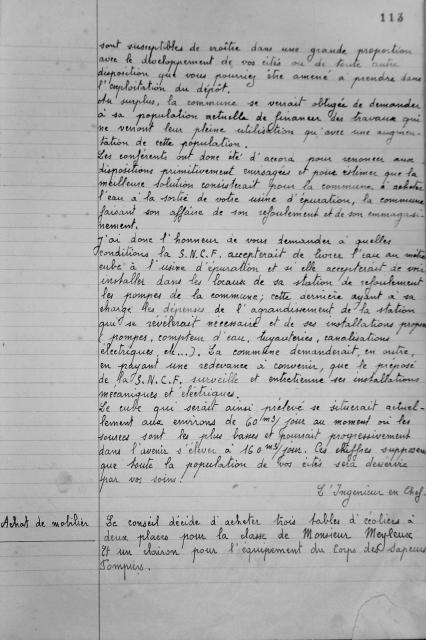 113
sont susceptibles de croître dans une grande proportion
avec le développement de vos cités ou de toute autre
disposition que vous pourriez être amené à prendre dans
l'exploitation du dépôt.
Au surplus, la commune se verrait obligée de demander
à sa population actuelle de financer des travaux qui
ne verront leur pleine utilisation qu'avec une augmen-
tation de cette population.
Les conférents ont donc été d'accord pour renoncer aux
dispositions primitivement envisagées et pour estimer que la
meilleure solution consisterait pour la commune à acheter
l'eau à la sortie de votre usine d'épuration, la commune
faisant son affaire de son refoulement et de son emmagasi-
nement.
J'ai donc l'honneur de vous demander à quelles
conditions la S.N.C.F. accepterait de livrer l'eau au mètre
cube à l'usine d'épuration et si elle accepterait de voir
installer dans les locaux de sa station de refoulement
les pompes de la commune; cette dernière ayant à sa
charge les dépenses de l'agrandissement de la station
qui se révèlerait nécessaire et de ses installations propres
(pompes, compteur d'eau, tuyauteries, canalisations
électriques etc...). La commune demanderait, en outre,
en payant une redevance à convenir, que le préposé
de la S.N.C.F. surveille et entretienne ses installations
mécaniques et électriques.
Le cube qui serait ainsi prélevé se situerait actuel-
lement aux environs de 60 m3/jour au moment où les
sources sont les plus basses et pourrait progressivement
dans l'avenir s'élever à 160 m3/jour. Ces chiffres supposent
que toute la population de vos cités sera desservie
par vos soins.
L'Ingénieur en Chef.
Achat de mobilier
Le conseil décide d'acheter trois tables d'écoliers à
deux places pour la classe de Monsieur Meyleux
Et un clairon pour l'équipement du Corps des Sapeurs
Pompiers.